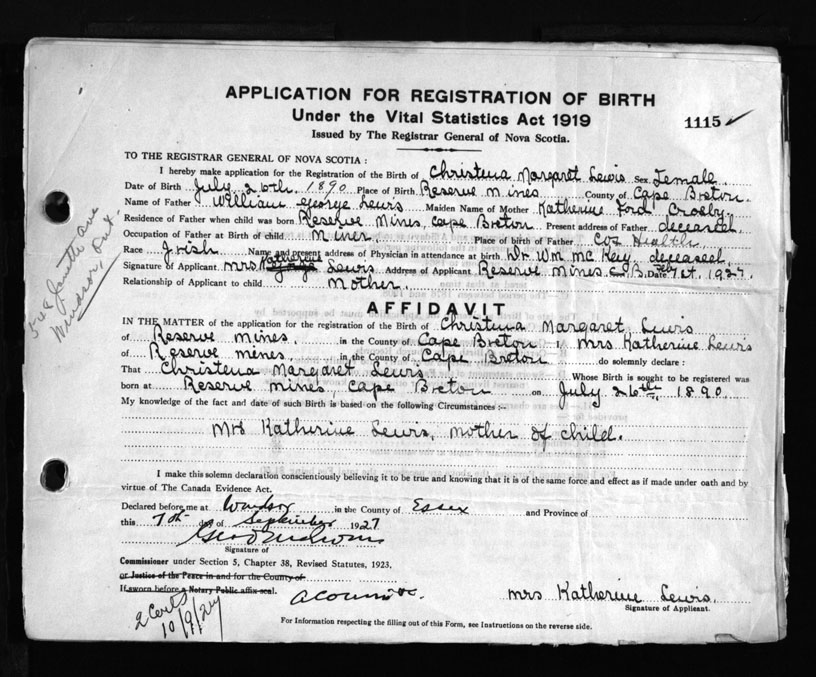 APPLICATION FOR REGISTRATION OF BIRTH
Under the Vital Statistics Act 1919
1115 ✓
Issued by The Registrar General of Nova Scotia.
TO THE REGISTRAR GENERAL OF NOVA SCOTIA :
I hereby make application for the Registration of the Birth of Christena Margaret Lewis Sex Female
Date of Birth July 26th 1890 Place of Birth Reserve Mines County of Cape Breton
Name of Father William George Lewis Maiden Name of Mother Katherine Ford Crosby
Residence of Father when child was born Reserve Mines, Cape Breton Present address of Father deceased
Occupation of Father at Birth of child Miner Place of birth of Father Health
Race Irish Name and present address of Physician in attendance at birth Dr Wm McKey, deceased
Signature of Applicant Mrs Katherine Lewis Address of Applicant Reserve Mines C.B. Date 1927
Relationship of Applicant to child Mother
Ave
Windsor, Ont.
AFFIDAVIT
IN THE MATTER of the application for the registration of the Birth of Christena Margaret Lewis
of Reserve Mines in the County of Cape Breton I, Mrs Katherine Lewis
of Reserve Mines in the County of Cape Breton do solemnly declare :
That Christena Margaret Lewis Whose Birth is sought to be registered was
born at Reserve Mines, Cape Breton on July 26th, 1890
My knowledge of the fact and date of such Birth is based on the following Circumstances :-
Mrs Katherine Lewis, mother of child.
I make this solemn declaration conscientiously believing it to be true and knowing that it is of the same force and effect as if made under oath and by
virtue of The Canada Evidence Act.
Declared before me at Windsor in the County of Essex and Province of
this 7th day of September 1927
Signature of
Commissioner under Section 5, Chapter 38, Revised Statutes, 1923.
or Justice of the Peace in and for the County of
If sworn before a Notary Public affix seal.
Mrs Katherine Lewis
Signature of Applicant.
2 Certs
10/9/27
For Information respecting the filling out of this Form, see Instructions on the reverse side.